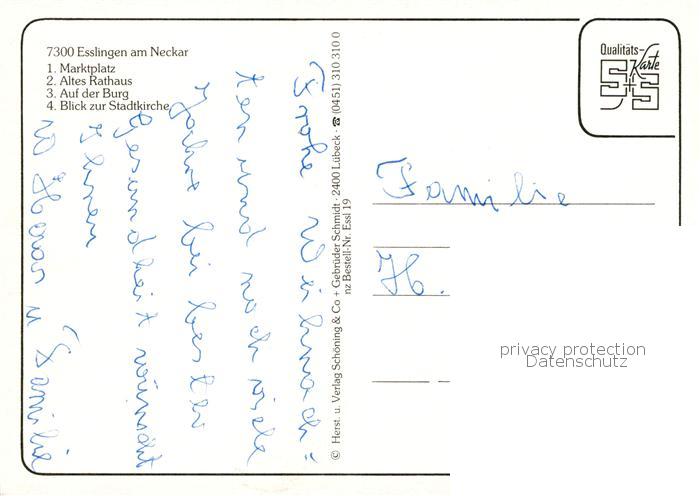 7300 Esslingen am Neckar
1. Marktplatz
2. Altes Rathaus
3. Auf der Burg
4. Blick zur Stadtkirche
Frohe Weihnach=
ten und noch viele
Jahre bei bester
Gesundheit wünscht
Familie
© Herst. u. Verlag Schöning & Co + Gebrüder Schmidt · 2400 Lübeck · ☎ (04 51) 310 310 0
nz Bestell-Nr. Essl 19
Qualitäts-
Karte
S+S
Familie
H.
privacy protection
Datenschutz